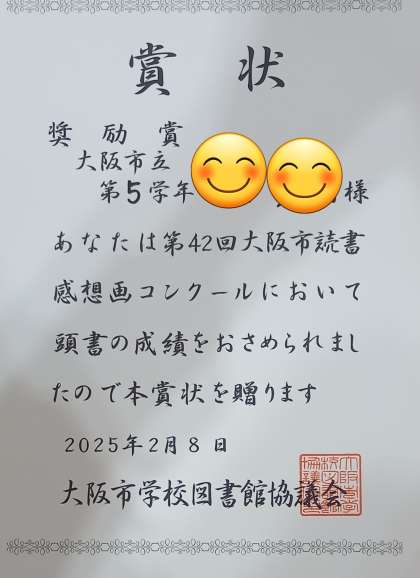 賞状
奨励賞
大阪市立
第5学年 様
あなたは第42回大阪市読書
感想画コンクールにおいて
頭書の成績をおさめられまし
たので本賞状を贈ります
2025年2月8日
大阪市学校図書館協議会